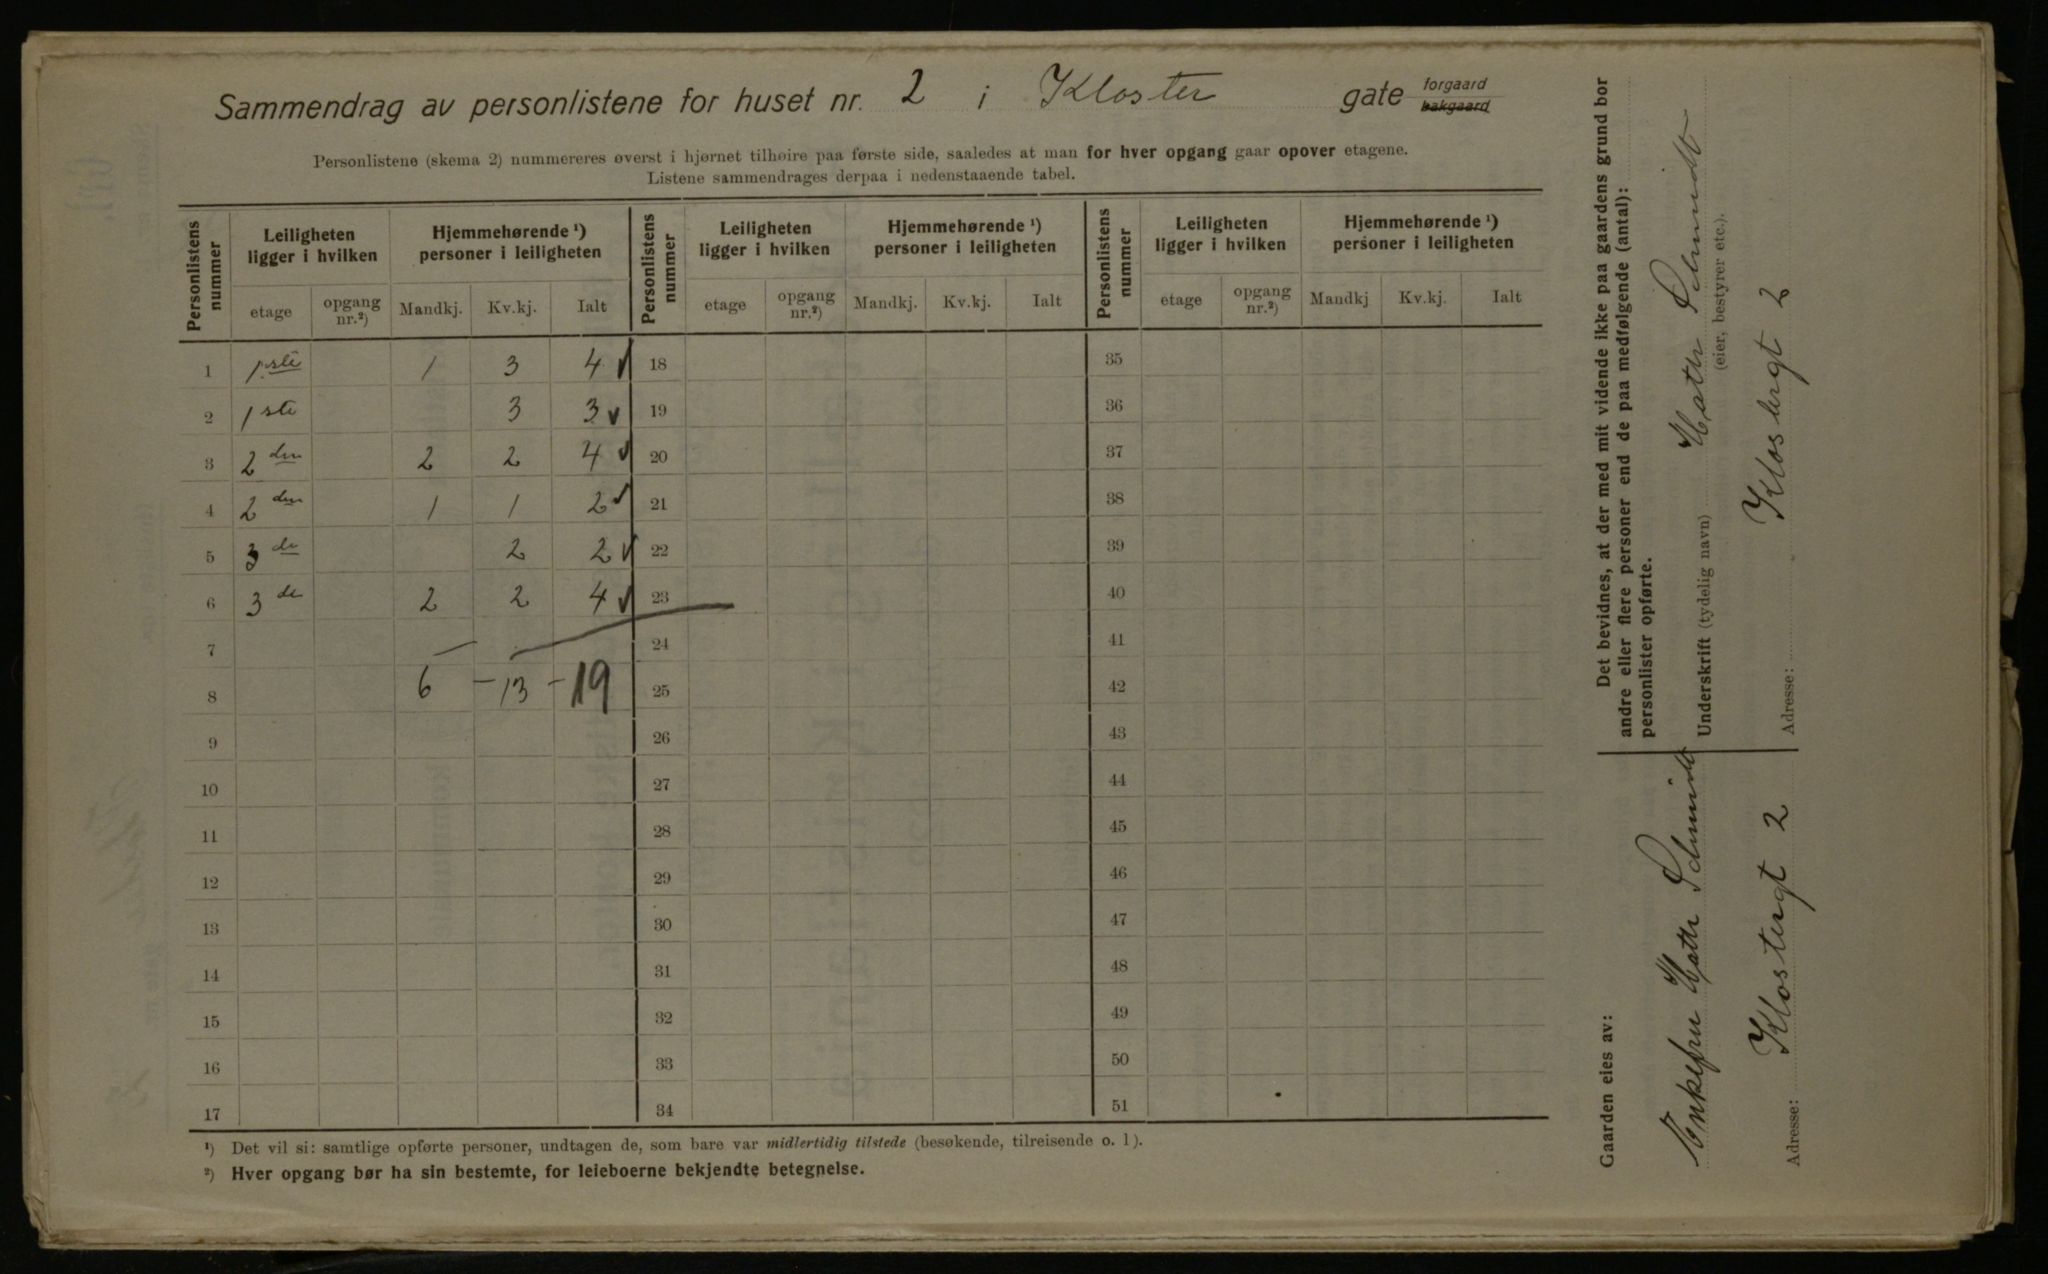 Sammendrag av personlistene for huset nr. 2 i Kloster gate forgaard
bakgaard
Personlistene (skema 2) nummereres øverst i hjørnet tilhøire paa første side, saaledes at man for hver opgang gaar opover etagene.
Listene sammendrages derpaa i nedenstaaende tabel.
Personlistens nummer | Leiligheten ligger i hvilken | Hjemmehørende ¹) personer i leiligheten | Personlistens nummer | Leiligheten ligger i hvilken | Hjemmehørende ¹) personer i leiligheten | Personlistens nummer | Leiligheten ligger i hvilken | Hjemmehørende ¹) personer i leiligheten
etage | opgang nr.²) | Mandkj. | Kv.kj. | Ialt | etage | opgang nr.²) | Mandkj. | Kv.kj. | Ialt | etage | opgang nr.²) | Mandkj | Kv.kj. | Ialt
1 | 1ste | 1 | 3 | 4 ✓ | 18 | 35
2 | 1ste | 3 | 3 ✓ | 19 | 36
3 | 2den | 2 | 2 | 4 ✓ | 20 | 37
4 | 2den | 1 | 1 | 2 ✓ | 21 | 38
5 | 3de | 2 | 2 ✓ | 22 | 39
6 | 3de | 2 | 2 | 4 ✓ | 23 | 40
7 | 24 | 41
8 | 6 – 13 – 19 | 25 | 42
9 | 26 | 43
10 | 27 | 44
11 | 28 | 45
12 | 29 | 46
13 | 30 | 47
14 | 31 | 48
15 | 32 | 49
16 | 33 | 50
17 | 34 | 51
¹) Det vil si: samtlige opførte personer, undtagen de, som bare var midlertidig tilstede (besøkende, tilreisende o. l).
²) Hver opgang bør ha sin bestemte, for leieboerne bekjendte betegnelse.
Det bevidnes, at der med mit vidende ikke paa gaardens grund bor
andre eller flere personer end de paa medfølgende (antal):
personlister opførte.
Underskrift (tydelig navn) Schmidt
(eier, bestyrer etc.).
Adresse: Klostergt 2
Gaarden eies av:
Enkefru Schmidt
Adresse: Klostergt 2